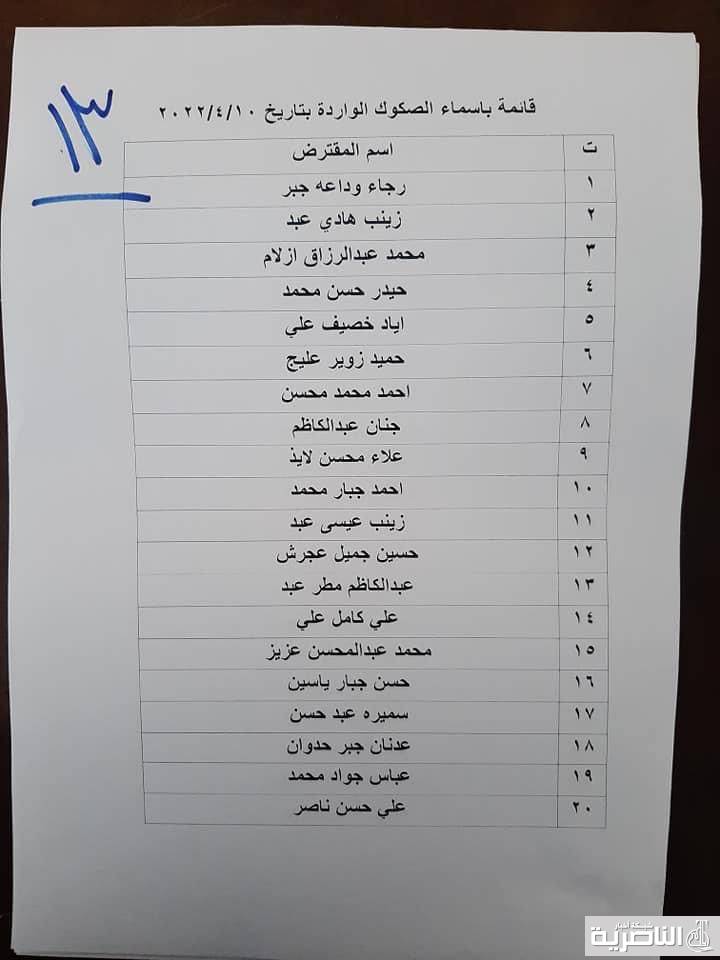 ١٣
قائمة باسماء الصكوك الواردة بتاريخ ٢٠٢٢/٤/١٠
ت اسم المقترض
١ رجاء وداعه جبر
٢ زينب هادي عبد
٣ محمد عبدالرزاق ازلام
٤ حيدر حسن محمد
٥ اياد خصيف علي
٦ حميد زوير عليج
٧ احمد محمد محسن
٨ جنان عبدالكاظم
٩ علاء محسن لايذ
١٠ احمد جبار محمد
١١ زينب عيسى عبد
١٢ حسين جميل عجرش
١٣ عبدالكاظم مطر عبد
١٤ علي كامل علي
١٥ محمد عبدالمحسن عزيز
١٦ حسن جبار ياسين
١٧ سميره عبد حسن
١٨ عدنان جبر حدوان
١٩ عباس جواد محمد
٢٠ علي حسن ناصر
شبكة اخبار
الناصرية